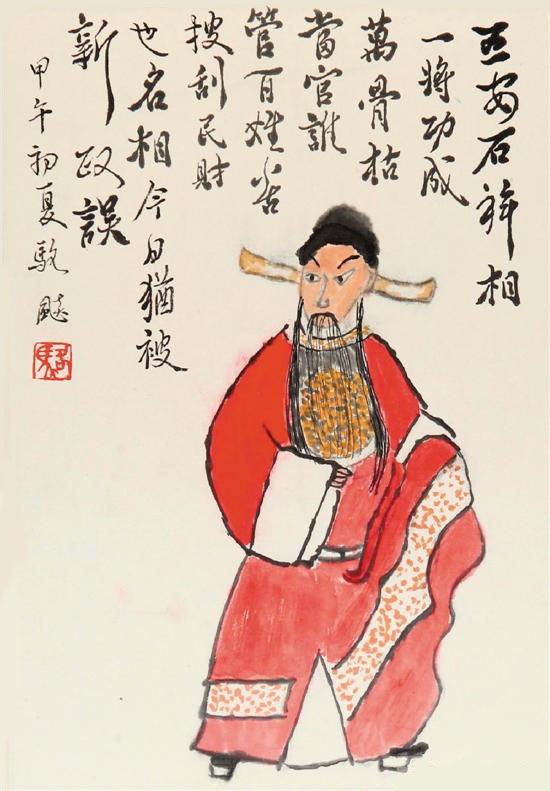 王安石拜相
一將功成
萬骨枯
當官誰
管百姓苦
搜刮民財
也名相今日猶被
新政誤
甲午初夏駿飈